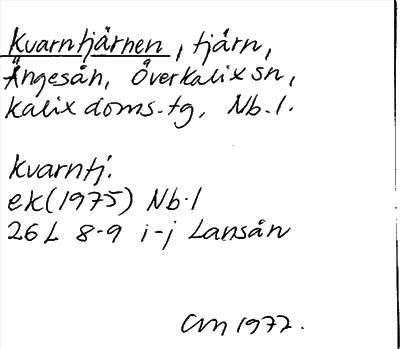 Kvarntjärnen, tjärn,
Ängesån, Överkalix sn,
Kalix doms.tg, Nb.l.
Kvarntj.
ek(1975) Nb.l
26L 8-9 i-j Lansån
CM 1977.